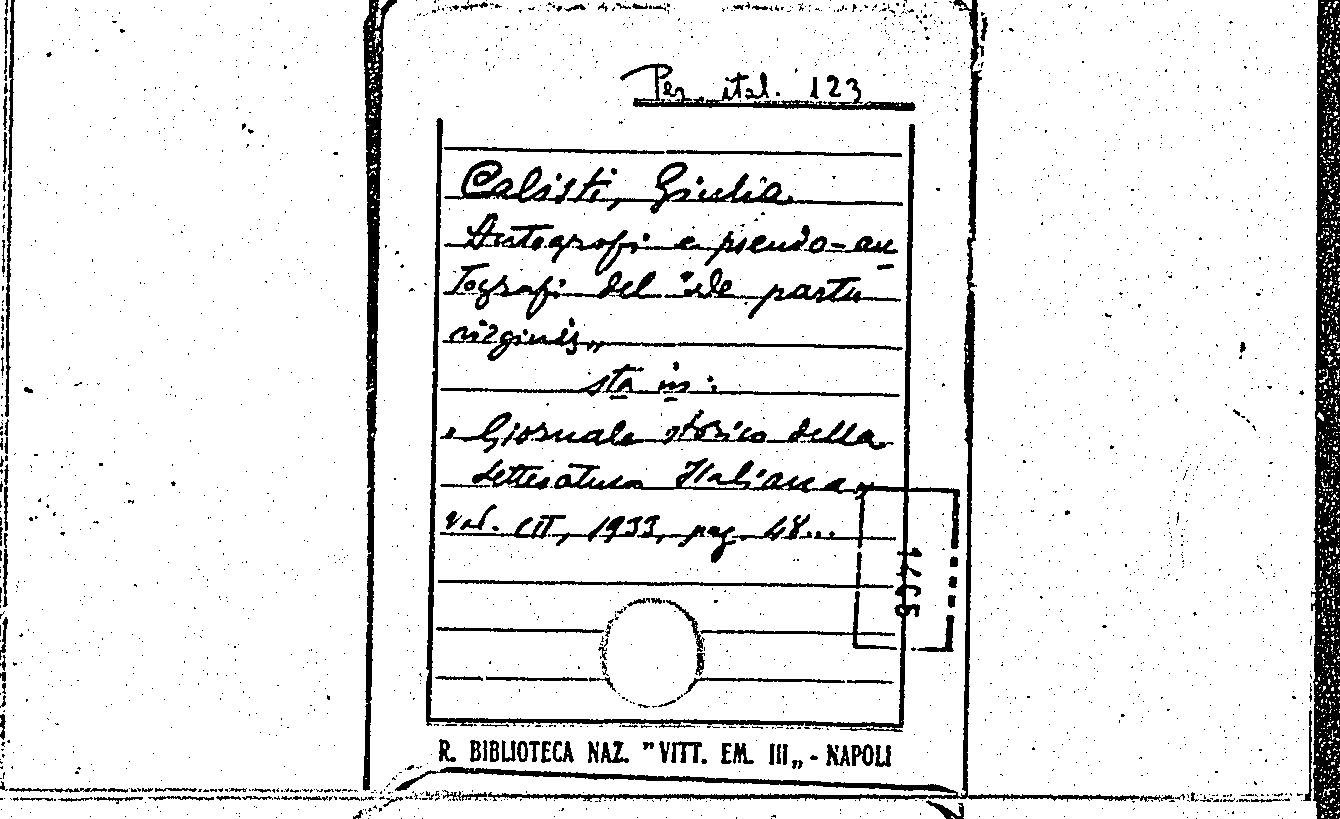 Per. ital. 123
Calisti, Giulia.
Autografi e pseudo-au
tografi del "De partu
virginis„
sta in:
"Giornale storico della
Letteratura Italiana„
vol. CII, 1933, pag. 48...
R. BIBLIOTECA NAZ. "VITT. EM. III„ - NAPOLI